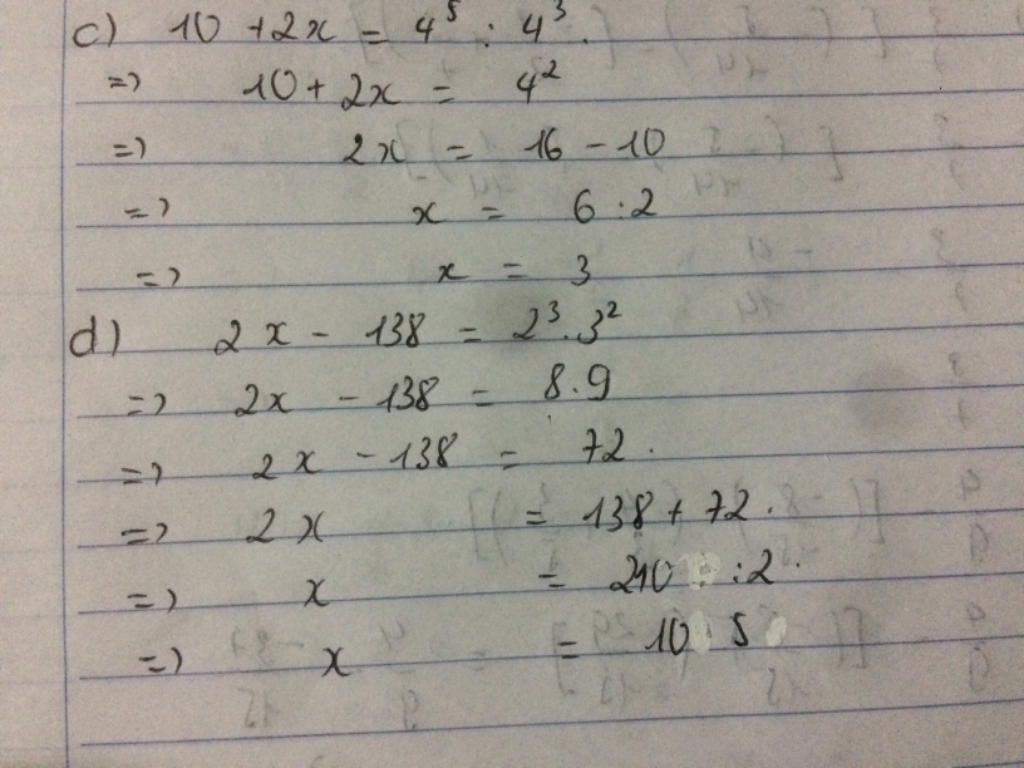 c) 10 + 2x = 4⁵ : 4³.
=> 10 + 2x = 4²
=> 2x = 16 - 10
=> x = 6 : 2
=> x = 3
d) 2x - 138 = 2³.3²
=> 2x - 138 = 8.9
=> 2x - 138 = 72.
=> 2x = 138 + 72.
=> x = 210 : 2.
=> x = 105